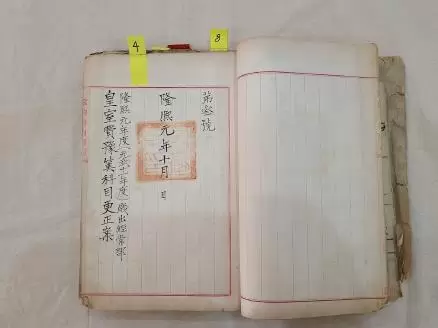 4
8
第叁號
隆熙元年十月 日
隆熙元年度(光武十一年度)歲出經常部
皇室費豫算科目更正案